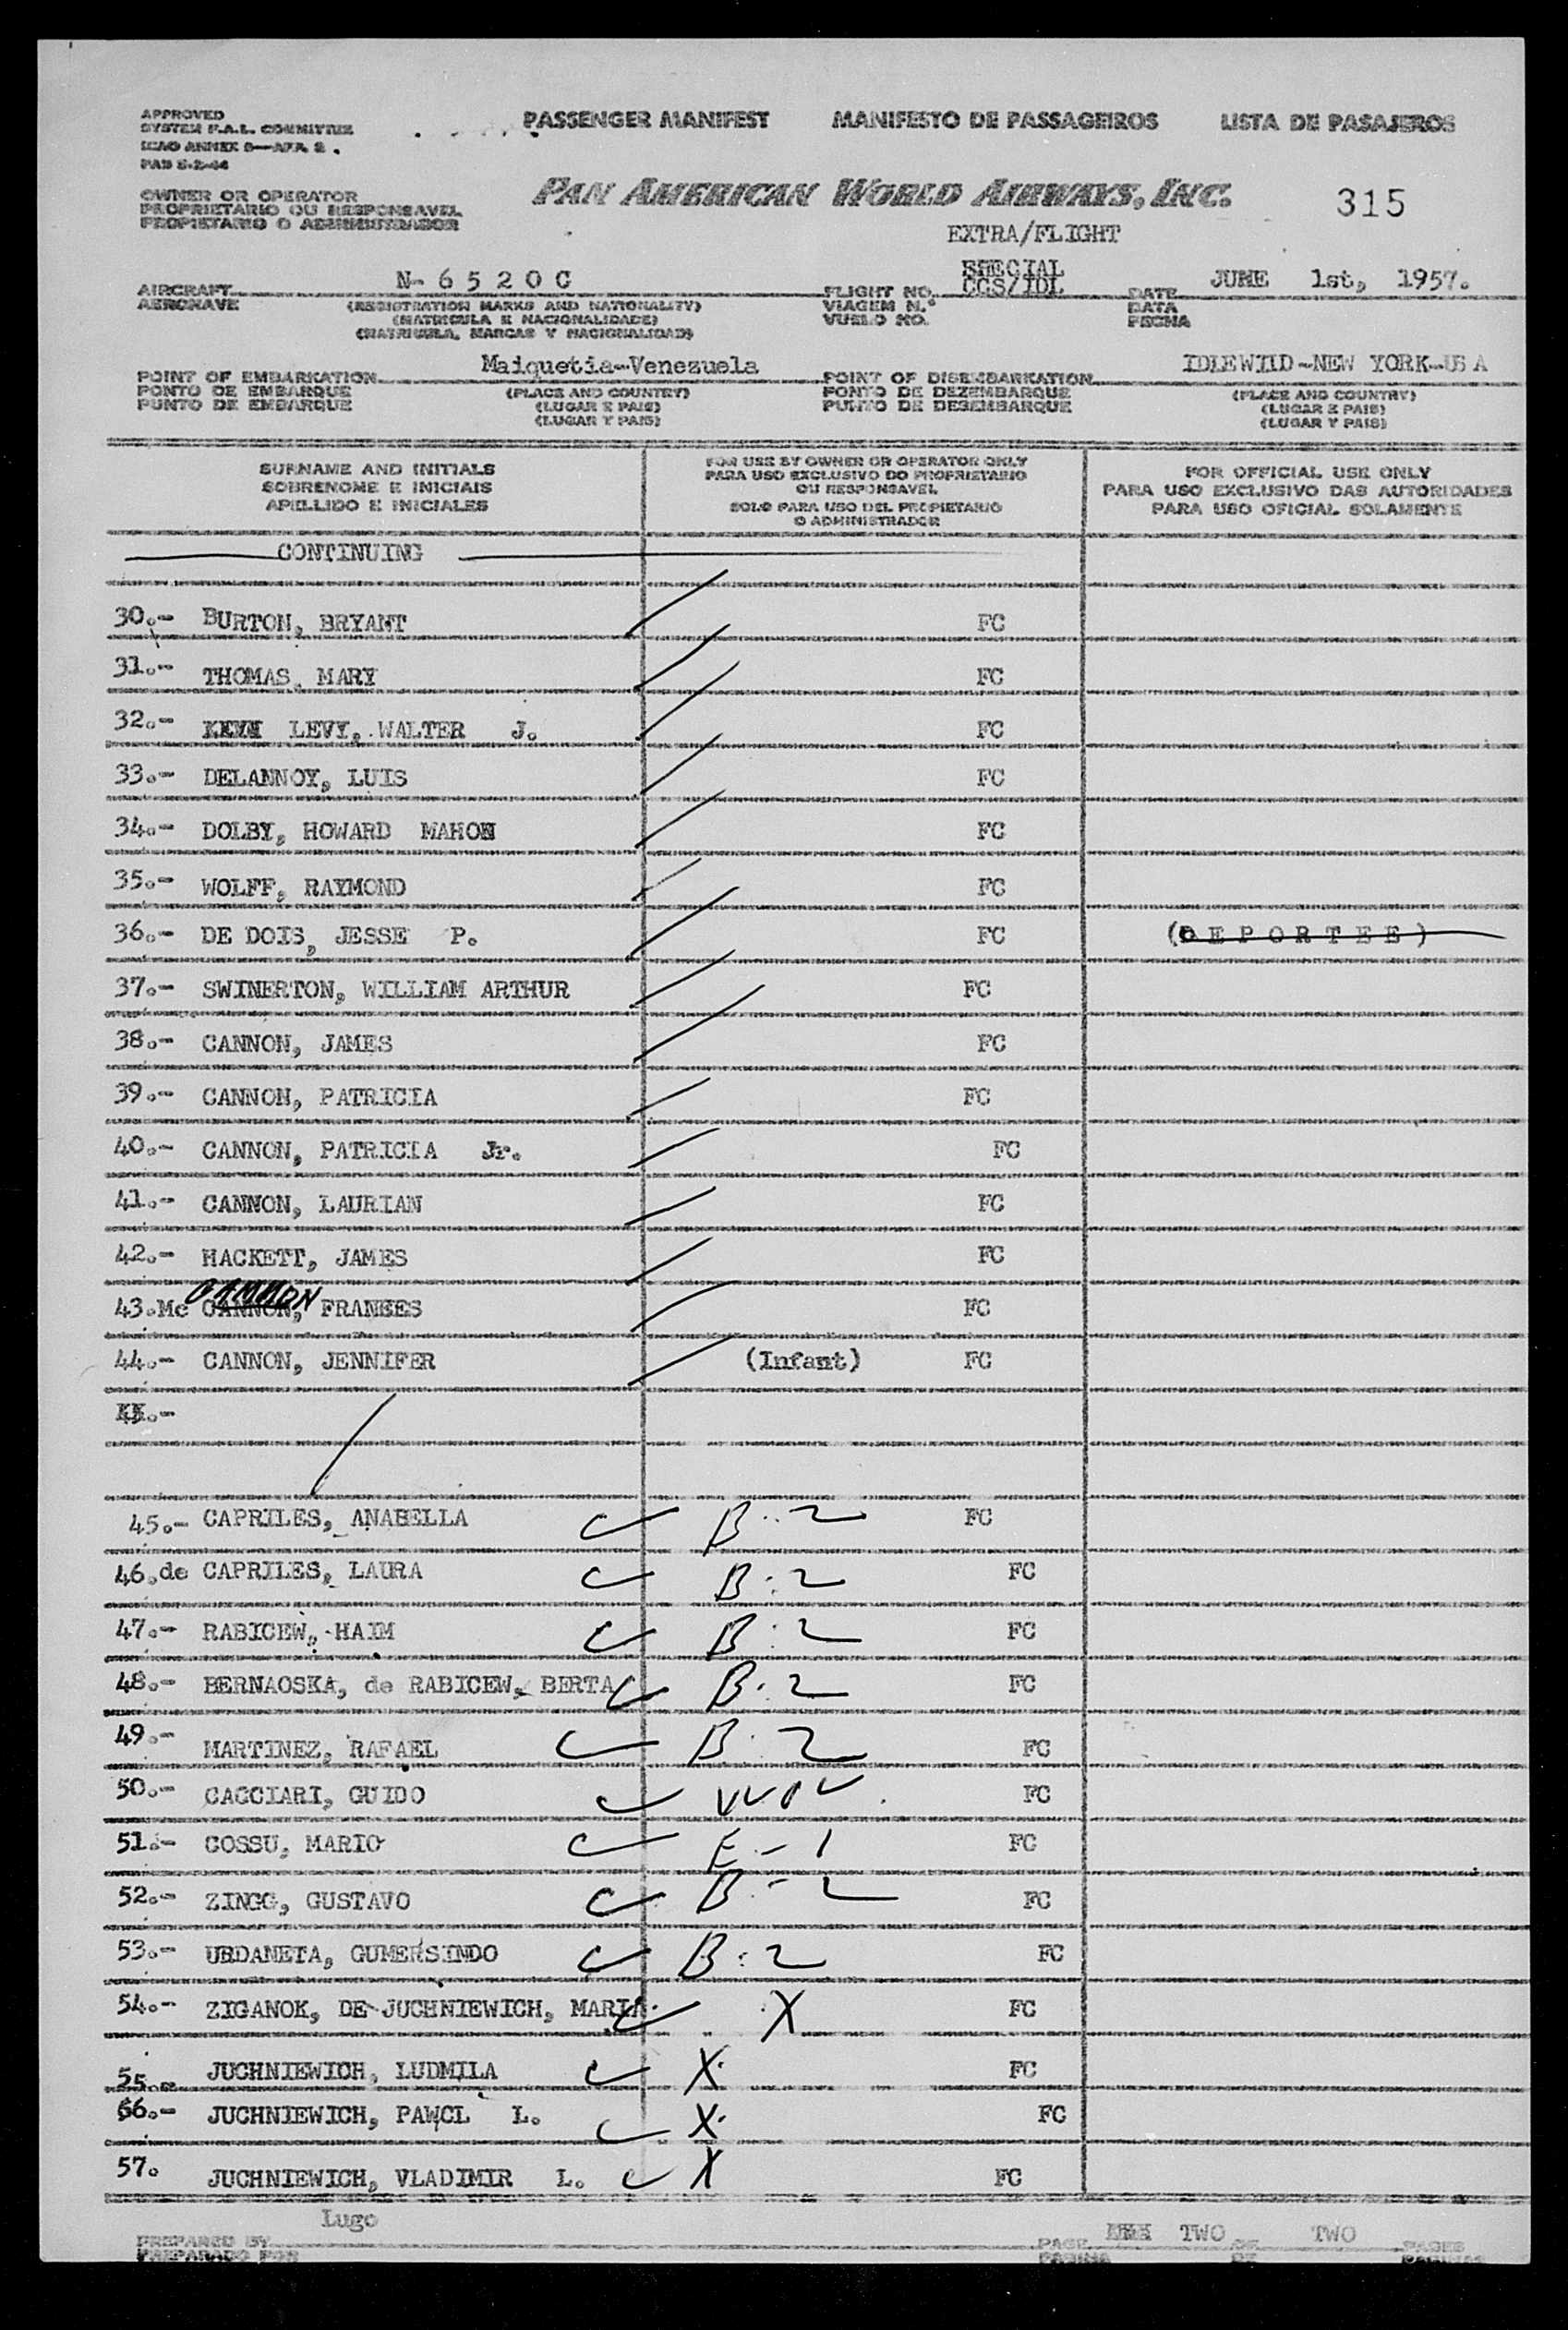 APPROVED
SYSTEM F.A.L. COMMITTEE
ICAO ANNEX 9—APP. 2
PAD 5-2-44
PASSENGER MANIFEST MANIFESTO DE PASSAGEIROS LISTA DE PASAJEROS
OWNER OR OPERATOR
PROPRIETARIO OU RESPONSAVEL
PROPIETARIO O ADMINISTRADOR
PAN AMERICAN WORLD AIRWAYS, INC. 315
EXTRA/FLIGHT
SPECIAL
AIRCRAFT N- 6 5 2 0 C FLIGHT NO. CCS/IDL DATE JUNE 1st, 1957.
AERONAVE (REGISTRATION MARKS AND NATIONALITY) VIAGEM N.º DATA
(MATRICULA E NACIONALIDADE) VUELO NO. FECHA
(MATRICULA, MARCAS Y NACIONALIDAD)
POINT OF EMBARKATION Maiquetia--Venezuela POINT OF DISEMBARKATION IDLEWILD-NEW YORK-USA
PONTO DE EMBARQUE (PLACE AND COUNTRY) PONTO DE DEZEMBARQUE (PLACE AND COUNTRY)
PUNTO DE EMBARQUE (LUGAR E PAIS) PUNTO DE DESEMBARQUE (LUGAR E PAIS)
(LUGAR Y PAIS) (LUGAR Y PAIS)
SURNAME AND INITIALS
SOBRENOME E INICIAIS
APELLIDO E INICIALES
FOR USE BY OWNER OR OPERATOR ONLY
PARA USO EXCLUSIVO DO PROPRIETARIO
OU RESPONSAVEL
SOLO PARA USO DEL PROPIETARIO
O ADMINISTRADOR
FOR OFFICIAL USE ONLY
PARA USO EXCLUSIVO DAS AUTORIDADES
PARA USO OFICIAL SOLAMENTE
CONTINUING
30.- BURTON, BRYANT FC
31.- THOMAS, MARY FC
32.- LEVY, WALTER J. FC
33.- DELANNOY, LUIS FC
34.- DOLBY, HOWARD MAHON FC
35.- WOLFF, RAYMOND FC
36.- DE DOIS, JESSE P. FC (D E P O R T E E )
37.- SWINERTON, WILLIAM ARTHUR FC
38.- CANNON, JAMES FC
39.- CANNON, PATRICIA FC
40.- CANNON, PATRICIA Jr. FC
41.- CANNON, LAURIAN FC
42.- HACKETT, JAMES FC
GAMMON
43.Mc CANNON, FRANCES FC
44.- CANNON, JENNIFER (Infant) FC
45.- CAPRILES, ANABELLA B-2 FC
46.de CAPRILES, LAURA B-2 FC
47.- RABICEW, HAIM B-2 FC
48.- BERNAOSKA, de RABICEW, BERTA B-2 FC
49.- MARTINEZ, RAFAEL B-2 FC
50.- CACCIARI, GUIDO FC
51.- COSSU, MARIO E-1 FC
52.- ZINGG, GUSTAVO B-2 FC
53.- URDANETA, GUMERSINDO B-2 FC
54.- ZIGANOK, DE-JUCHNIEWICH, MARIA X FC
55.- JUCHNIEWICH, LUDMILA X FC
56.- JUCHNIEWICH, PAWCL L. X FC
57. JUCHNIEWICH, VLADIMIR L. X FC
Lugo
PREPARED BY PAGE TWO OF TWO PAGES
PREPARADO POR PAGINA DE PAGINAS